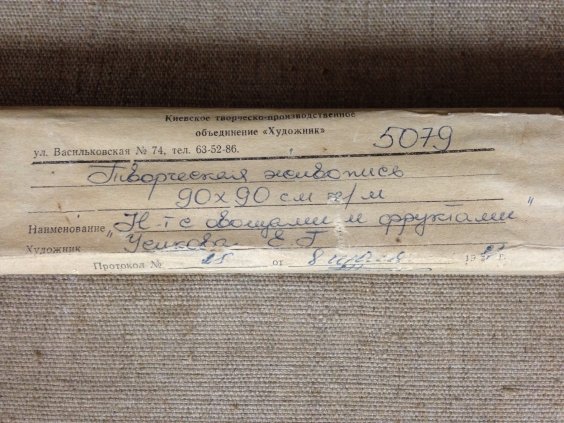 Киевское творческо-производственное
объединение «Художник»
ул. Васильковская № 74, тел. 63-52-86. 5079
Творческая живопись
90х90 см х/м
Наименование „Н-т с овощами и фруктами“
Художник Усикова Е Г
Протокол № 25 от 8 19 г.